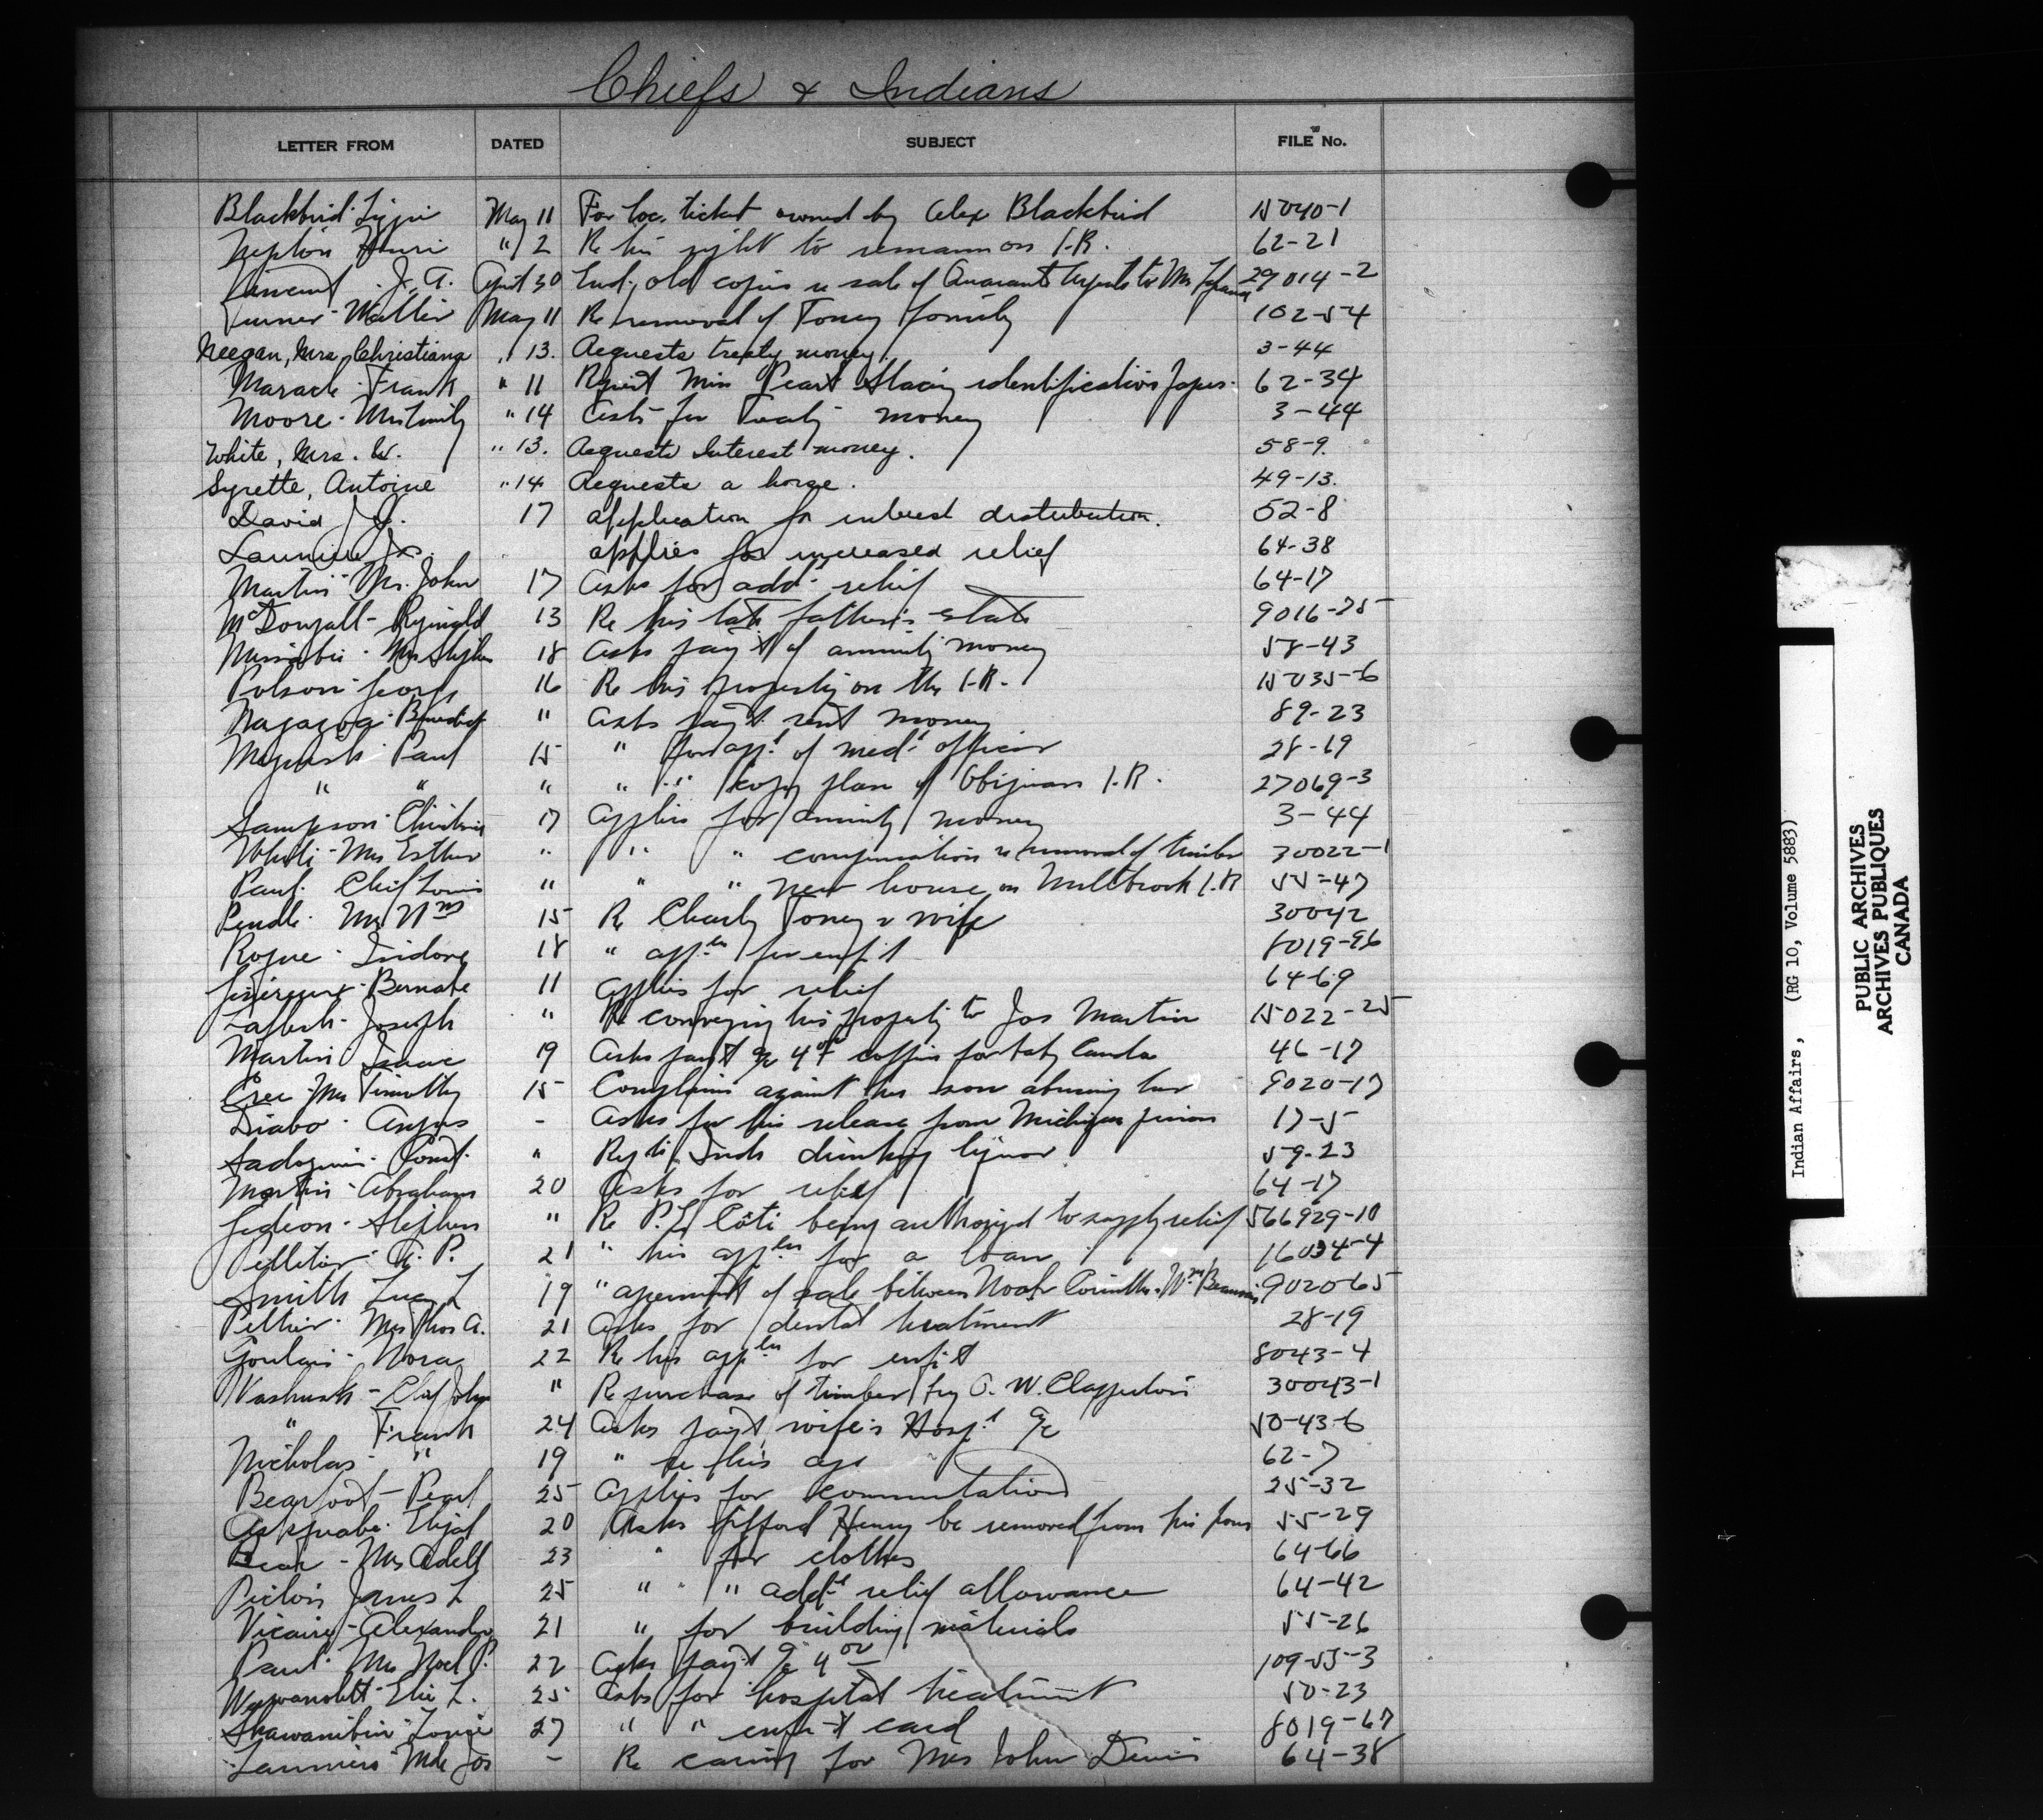 Chiefs & Indians
LETTER FROM DATED SUBJECT FILE No.
Blackbird May 11 For loc. ticket owned by Alex Blackbird 15040-1
Nepton Henri " 2 Re his right to remain on I.R. 62-21
Vincent J. A. April 30 old copies re sale of to Mr 29014-2
Turner - Walter May 11 Re removal of Toney family 102-54
Neegan, Mrs Christiana " 13. Requests treaty money. 3-44
Maracle - Frank " 11 Miss identification 62-34
Moore - Mrs Emily " 14 Asks for Treaty money 3-44
White, Mrs. W. " 13. Requests Interest money. 58-9.
Syrette, Antoine " 14 Requests a horse. 49-13.
David J. 17 application for interest distribution. 52-8
Launiere Jos. applies for increased relief 64-38
Martin - Mrs. John 17 Asks for add'l relief 64-17
McDougall - Reginald 13 Re his late father's estate 9016-25
Mrs Stephen 18 Asks pay't of annuity money 58-43
Polson - George 16 Re his property on the I.R. 15035-6
Benedict " Asks pay't rent money 89-23
Paul 15 " for app't of med'l officer 28-19
" " " " " copy plan of I.R. 27069-3
Sampson - Christina 17 Applies for annuity money 3-44
White - Mrs Esther " " " compensation re removal of timber 30022-1
Paul - Chief Louis " " " new house on Millbrook I.R 55-47
Mrs Wm 15 Re Charly Toney & wife 30042
Isidore 18 " app'ln for enf't 8019-96
Bernabe 11 Applies for relief 64-69
Joseph " Re conveying his property to Jos Martin 15022-25
Martin Isaac 19 Asks pay't a/c 4.00 coffin for baby 46-17
Cree - Mrs Timothy 15 Complains against her son abusing her 9020-17
Diabo - Angus - Asks for his release from Michigan prison 17-5
Const. " Inds drinking liquor 59-23
Martin - Abraham 20 Asks for relief 64-17
Gideon - Stephen " Re P. L. Côté being authorized to supply relief 566929-10
Pelletier - P. 21 " his app'ln for a loan 16034-4
Smith Lucy L 19 " agreement of sale between Noah & Wm 902065
Peltier - Mrs Thos A. 21 Asks for dental treatment 28-19
Goulais - Nora 22 Re his app'ln for enf't 8043-4
Chief John " Re purchase of timber by W. Clapperton 30043-1
" Frank 24 Asks pay't wife's Hosp'l a/c 50-43-6
Nicholas - " 19 " re his age 62-7
Bearfoot - Pearl 25 Applies for commutation 25-32
Elijah 20 Asks Gifford Henry be removed from his house 55-29
Bear - Mrs Adell 23 " for clothes 64-66
Picton James L 25 " " add'l relief allowance 64-42
Vicaire - Alexander 21 " for building materials 55-26
Paul - Mrs Noel P. 22 Asks pay't a/c 4.00 109-55-3
Wawanolett - L. 25 Asks for hospital treatment 50-23
27 " " enf't card 8019-67
Launiere Mde Jos - Re caring for Mrs John Denis 64-38
Indian Affairs, (RG 10, Volume 5883)
PUBLIC ARCHIVES
ARCHIVES PUBLIQUES
CANADA